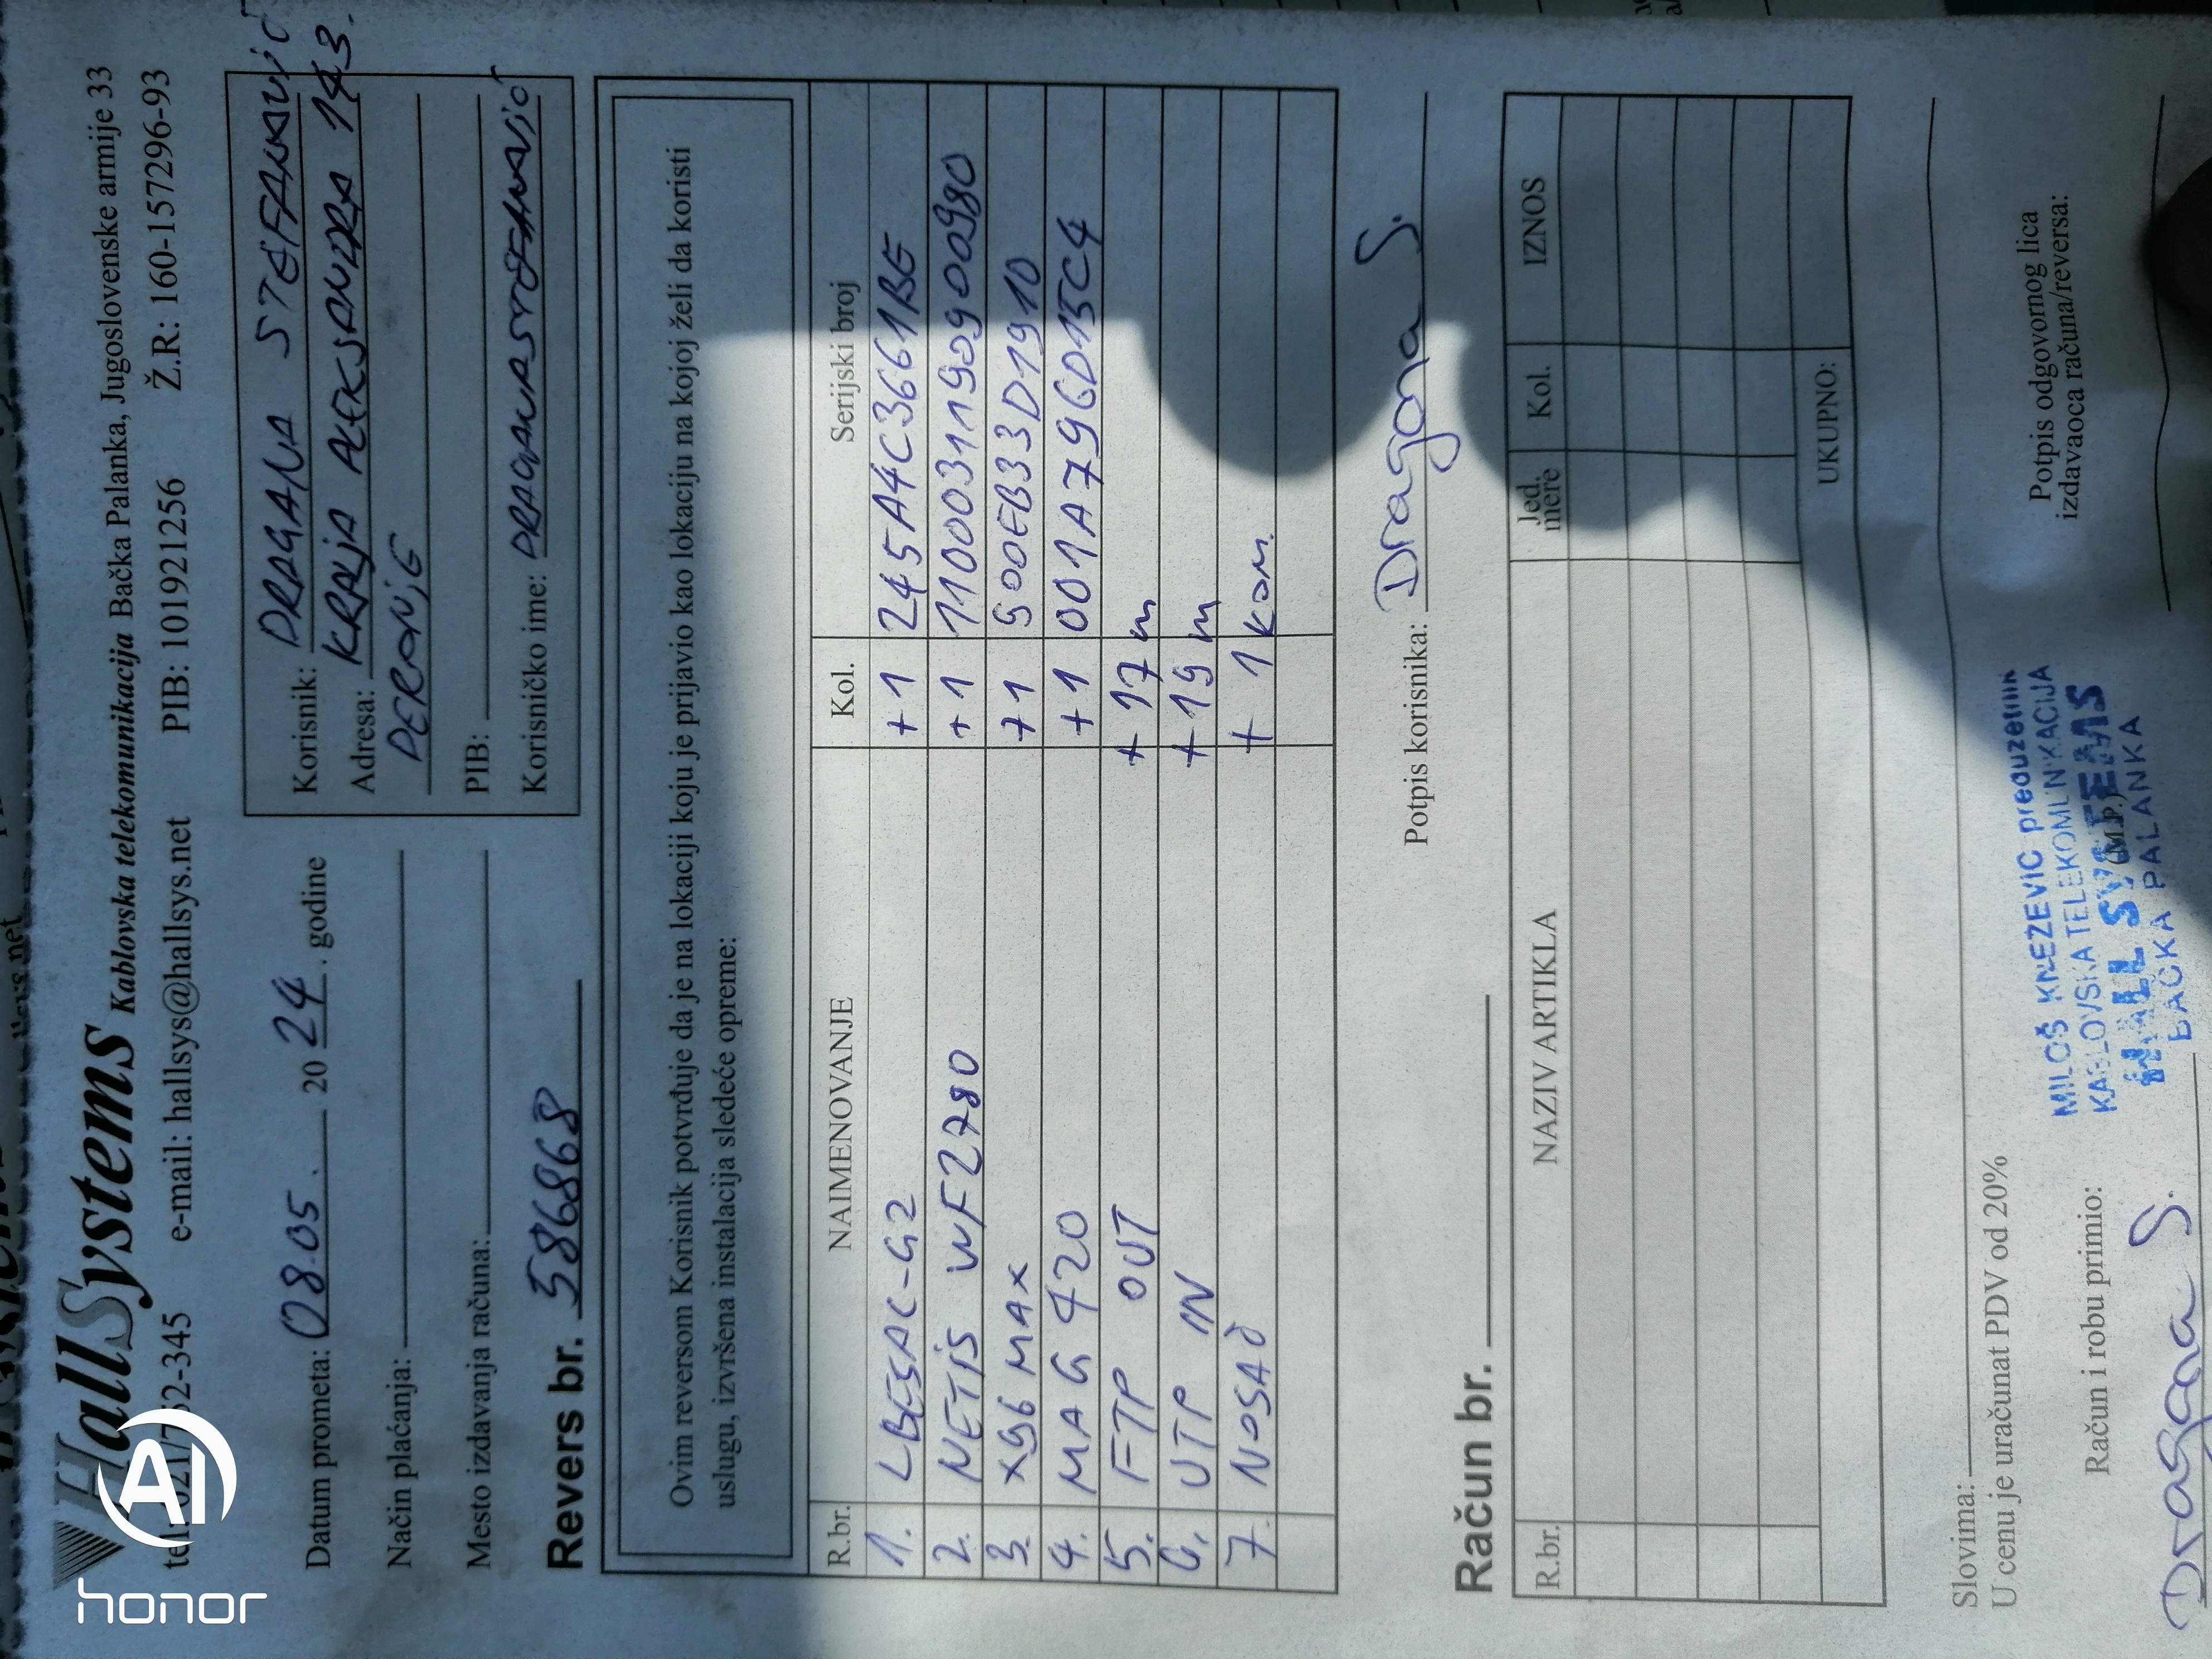 HallSystems Kablovska telekomunikacija Bačka Palanka, Jugoslovenske armije 33
e-mail: hallsys@hallsys.net PIB: 101921256 Ž.R: 160-157296-93
Datum prometa: 08.05. 2024. godine
Način plaćanja:
Mesto izdavanja računa:
Revers br. 586868
Korisnik: DRAGANA STEFANOVIĆ
Adresa: KRALJA ALEKSANDRA
PIB:
Korisničko ime:
Ovim reversom Korisnik potvrđuje da je na lokaciji koju je prijavio kao lokaciju na kojoj želi da koristi
uslugu, izvršena instalacija sledeće opreme:
R.br. NAIMENOVANJE Kol. Serijski broj
1. LBE5AC-G2 +1 245A4C3661BE
2. NETIS WF2780 +1 1100031190900980
3. X96 MAX +1 900EB33D1910
4. MAG 420 +1 001A796D15C4
5. FTP OUT +17 m
6. UTP IN +19 m
7. NOSAČ + 1 kom.
Potpis korisnika: Dragana S.
Račun br.
R.br. NAZIV ARTIKLA Jed. mere Kol. IZNOS
UKUPNO:
Slovima:
U cenu je uračunat PDV od 20%
Račun i robu primio:
Dragana S.
(M.P.)
MILOŠ KNEZEVIC preduzetnik
KABLOVSKA TELEKOMUNIKACIJA
HALL SYSTEMS
BAČKA PALANKA
Potpis odgovornog lica
izdavaoca računa/reversa:
AI
honor